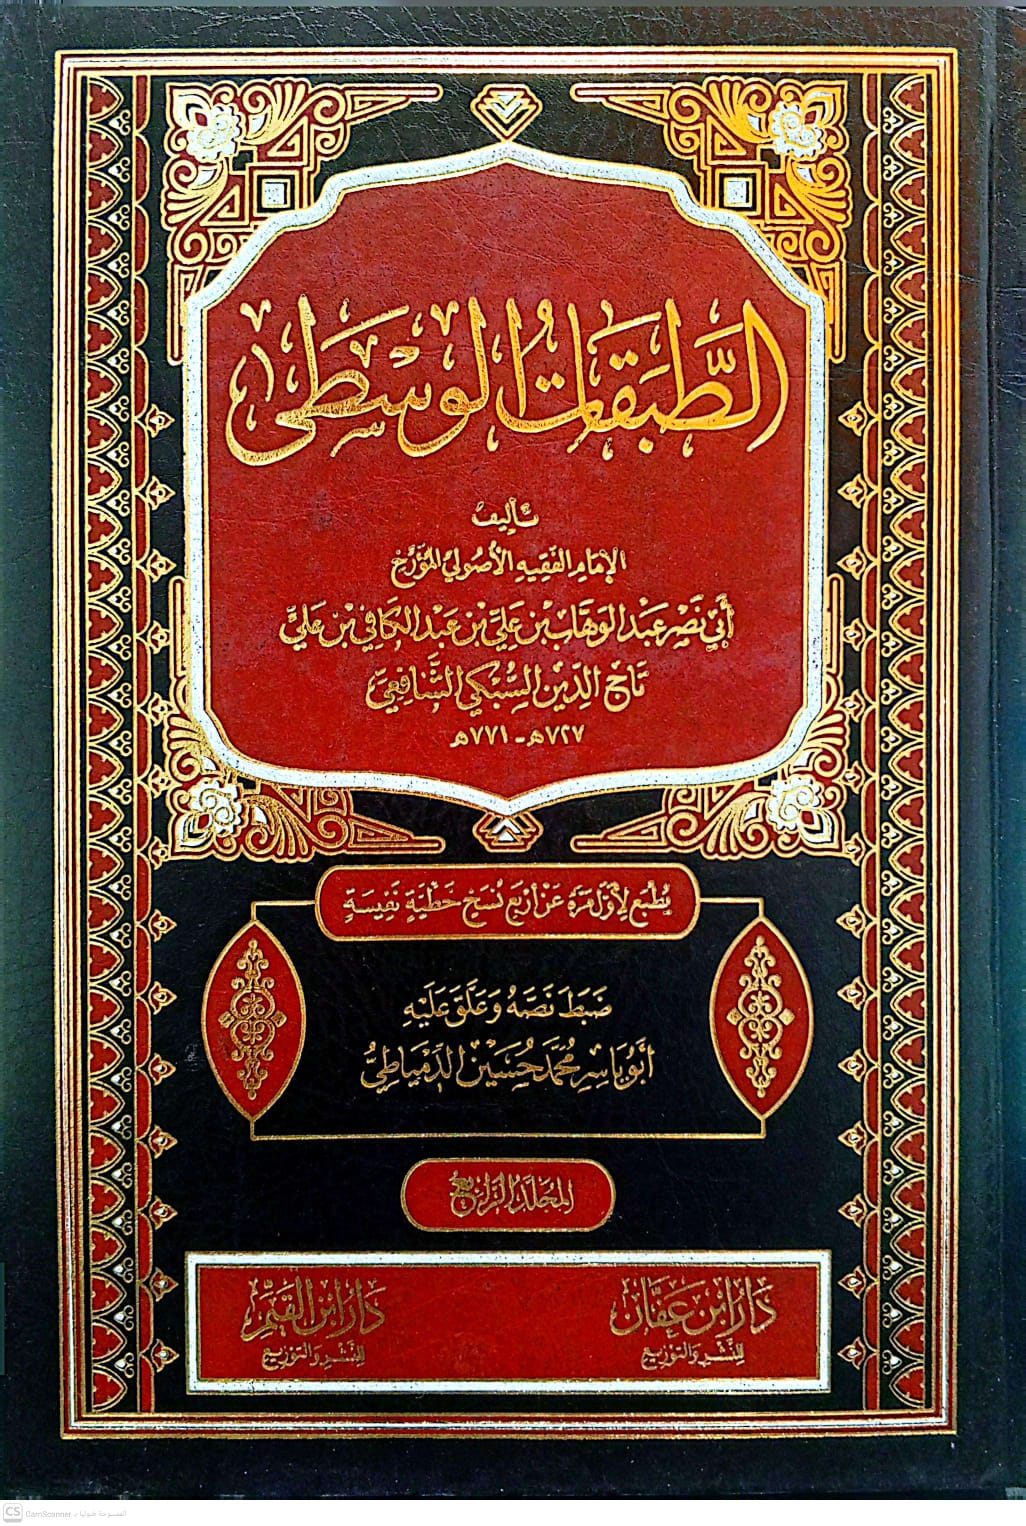 الطَّبَقَاتُ الوُسْطَى
تَأليف
الإمَامِ الفَقِيهِ الأُصُولِيِّ المُؤَرِّخِ
أَبِي نَصْرٍ عَبْدِ الوَهَّابِ بْنِ عَلِيِّ بْنِ عَبْدِ الكَافِي بْنِ عَلِيٍّ
تَاجِ الدِّينِ السُّبْكِيِّ الشَّافِعِيِّ
٧٢٧هـ - ٧٧١هـ
يُطْبَعُ لِأَوَّلِ مَرَّةٍ عَنْ أَرْبَعِ نُسَخٍ خَطِّيَّةٍ نَفِيسَةٍ
ضَبَطَ نَصَّهُ وَعَلَّقَ عَلَيْهِ
أَبُو يَاسِرٍ مُحَمَّد حُسَيْن الدِّمْيَاطِيُّ
المُجَلَّدُ الرَّابِعُ
دَارُ ابْنِ عَفَّان
لِلنَّشْرِ وَالتَّوْزِيعِ
دَارُ ابْنِ القَيِّمِ
لِلنَّشْرِ وَالتَّوْزِيعِ
CS CamScanner الممسوحة ضوئيا بـ